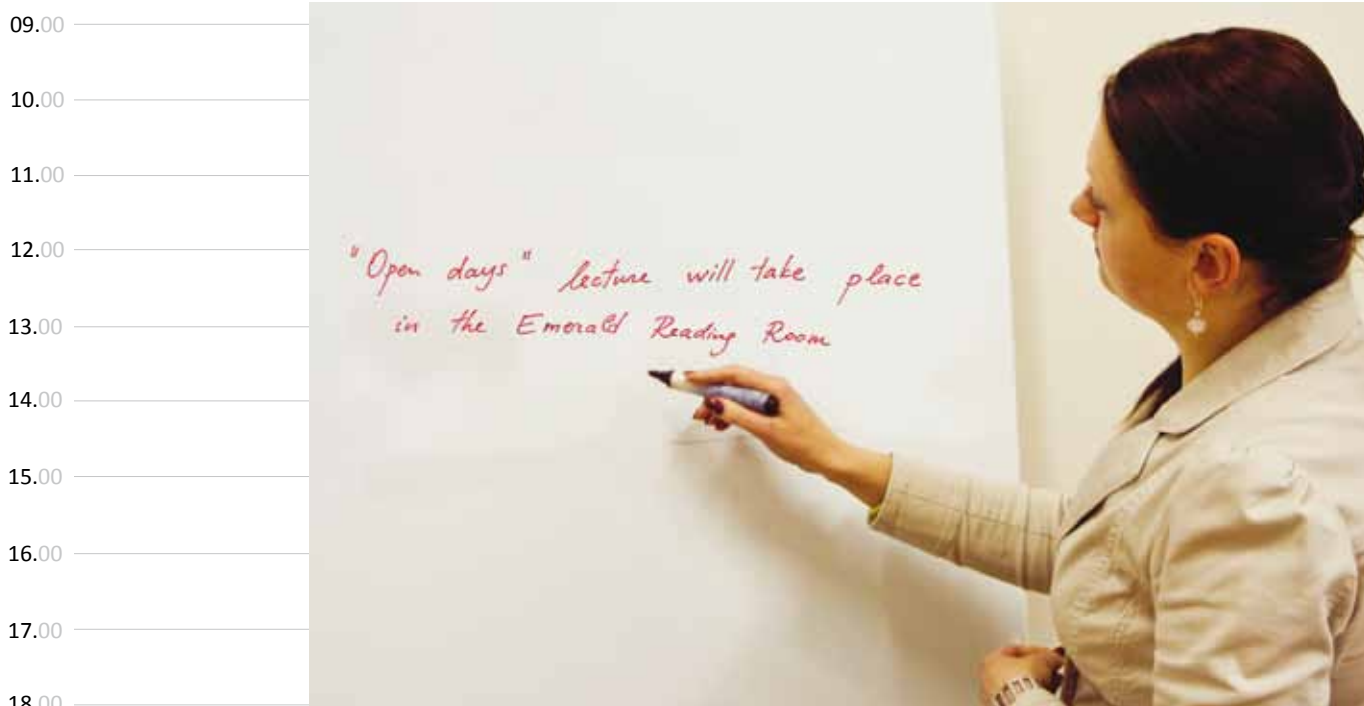 09.00
10.00
11.00
12.00
13.00
14.00
15.00
16.00
17.00
18.00
"Open days" lecture will take place
in the Emerald Reading Room